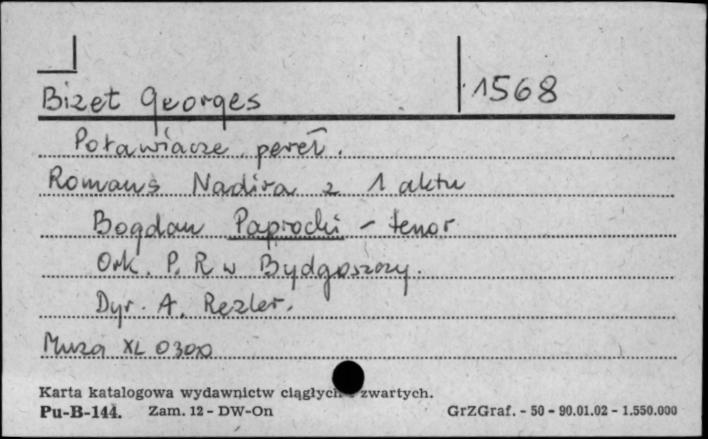 Bizet Georges 1568
Poławiacze pereł.
Romans Nadira z 1 aktu
Bogdan Paprocki - tenor
Ork. P. R w Bydgoszczy.
Dyr. A. Rezler.
Muza XL 0300
Karta katalogowa wydawnictw ciągłych zwartych.
Pu-B-144. Zam. 12 - DW-On GrZGraf. - 50 - 90.01.02 - 1.550.000